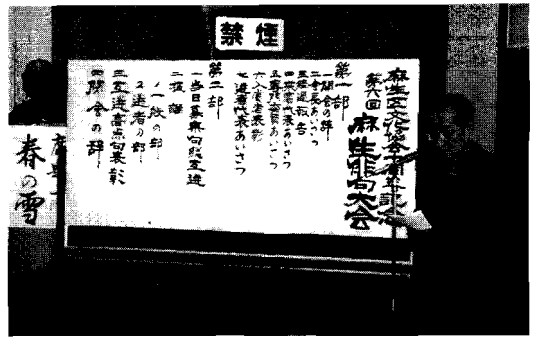 禁煙
麻生区文化協会十周年記念
第六回 麻生俳句大会
第一部
一開会の辞
二会長あいさつ
三経過報告
四来賓代表あいさつ
五選者代表あいさつ
六入選者表彰
七選者代表あいさつ
第二部
一当日募集句 互選
二披講
1一般の部
2選者の部
三互選高点句表彰
四閉会の辞
春の雪